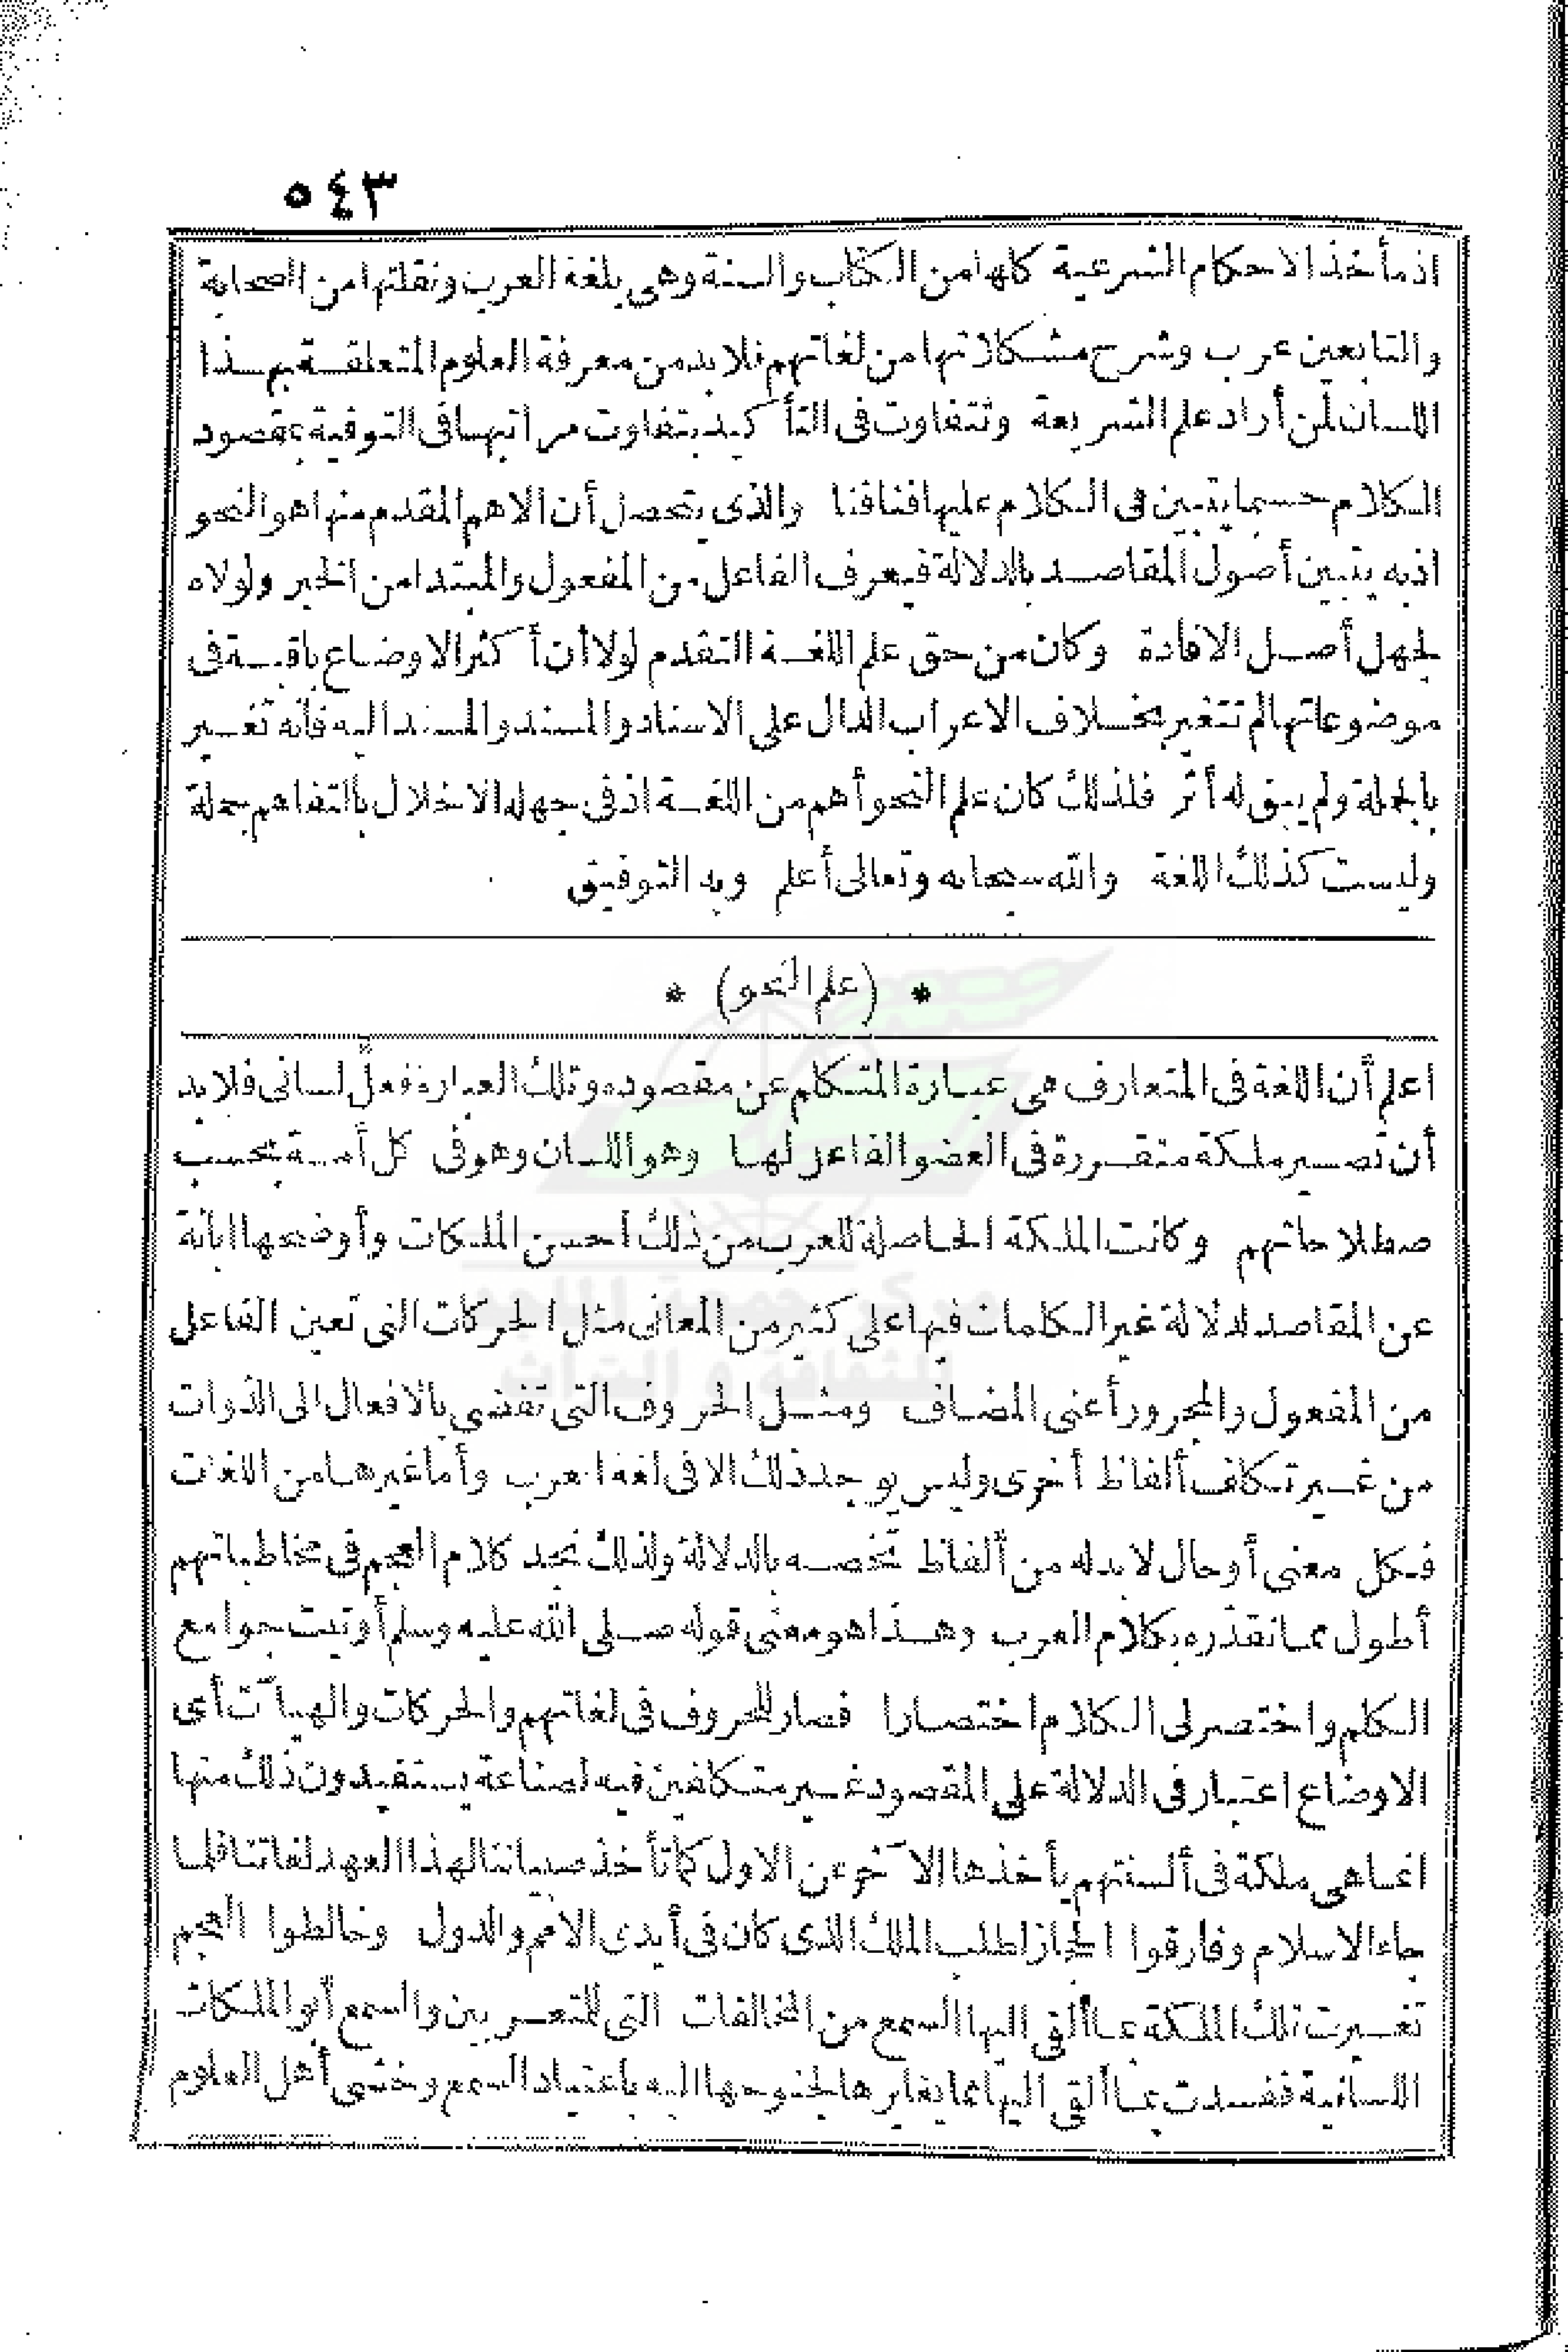 ٥٤٣
اذ مأخذ الاحكام الشرعية كلها من الكتاب والسنة وهى بلغة العرب ونقلتها من الصحابة
والتابعين عرب وشرح مشكلاتها من لغاتهم فلا بد من معرفة العلوم المتعلقة بهذا
اللسان لمن أراد علم الشريعة وتتفاوت فى التأكيد بتفاوت مراتبها فى التوفية بمقصود
الكلام حسبما يتبين فى الكلام عليها فنا فنا والذى يتحصل أن الاهم المقدم منها هو النحو
اذ به يتبين أصول المقاصد بالدلالة فيعرف الفاعل من المفعول والمبتدا من الخبر ولولاه
لجهل أصل الافادة وكان من حق علم اللغة التقدم لولا أن أكثر الاوضاع باقية فى
موضوعاتها لم تتغير بخلاف الاعراب الدال على الاسناد والمسند والمسند اليه فانه تغير
بالجملة ولم يبق له أثر فلذلك كان علم النحو أهم من اللغة اذ فى جهله الاخلال بالتفاهم جملة
وليست كذلك اللغة والله سبحانه وتعالى أعلم وبه التوفيق
* (علم النحو) *
اعلم أن اللغة فى المتعارف هى عبارة المتكلم عن مقصوده وتلك العبارة فعل لسانى فلا بد
أن تصير ملكة متقررة فى العضو الفاعل لها وهو اللسان وهو فى كل أمة بحسب
صطلاحاتهم وكانت الملكة الحاصلة للعرب من ذلك أحسن الملكات وأوضحها ابانة
عن المقاصد لدلالة غير الكلمات فيها على كثير من المعانى مثل الحركات التى تعين الفاعل
من المفعول والمجرور أعنى المضاف ومثل الحروف التى تفضى بالافعال الى الذوات
من غير تكلف ألفاظ أخرى وليس يوجد ذلك الا فى لغة العرب وأما غيرها من اللغات
فكل معنى أو حال لا بد له من ألفاظ تخصه بالدلالة ولذلك نجد كلام العجم فى مخاطباتهم
أطول مما نقدره بكلام العرب وهذا هو معنى قوله صلى الله عليه وسلم أوتيت جوامع
الكلم واختصر لى الكلام اختصارا فصار للحروف فى لغاتهم والحركات والهيآت أى
الاوضاع اعتبار فى الدلالة على المقصود غير متكلفين فيه لصناعة يستفيدون ذلك منها
انما هى ملكة فى ألسنتهم يأخذها الآخر عن الاول كما تأخذ صبياننا لهذا العهد لغاتنا فلما
جاء الاسلام وفارقوا الحجاز لطلب الملك الذى كان فى أيدى الامم والدول وخالطوا العجم
تغيرت تلك الملكة بما ألقى اليها السمع من المخالفات التى للمتعربين والسمع أبو الملكات
اللسانية ففسدت بما ألقى اليها مما يغايرها لجنوحها اليه باعتياد السمع وخشى أهل العلوم
مركز جمعة الماجد
للثقافة و التراث